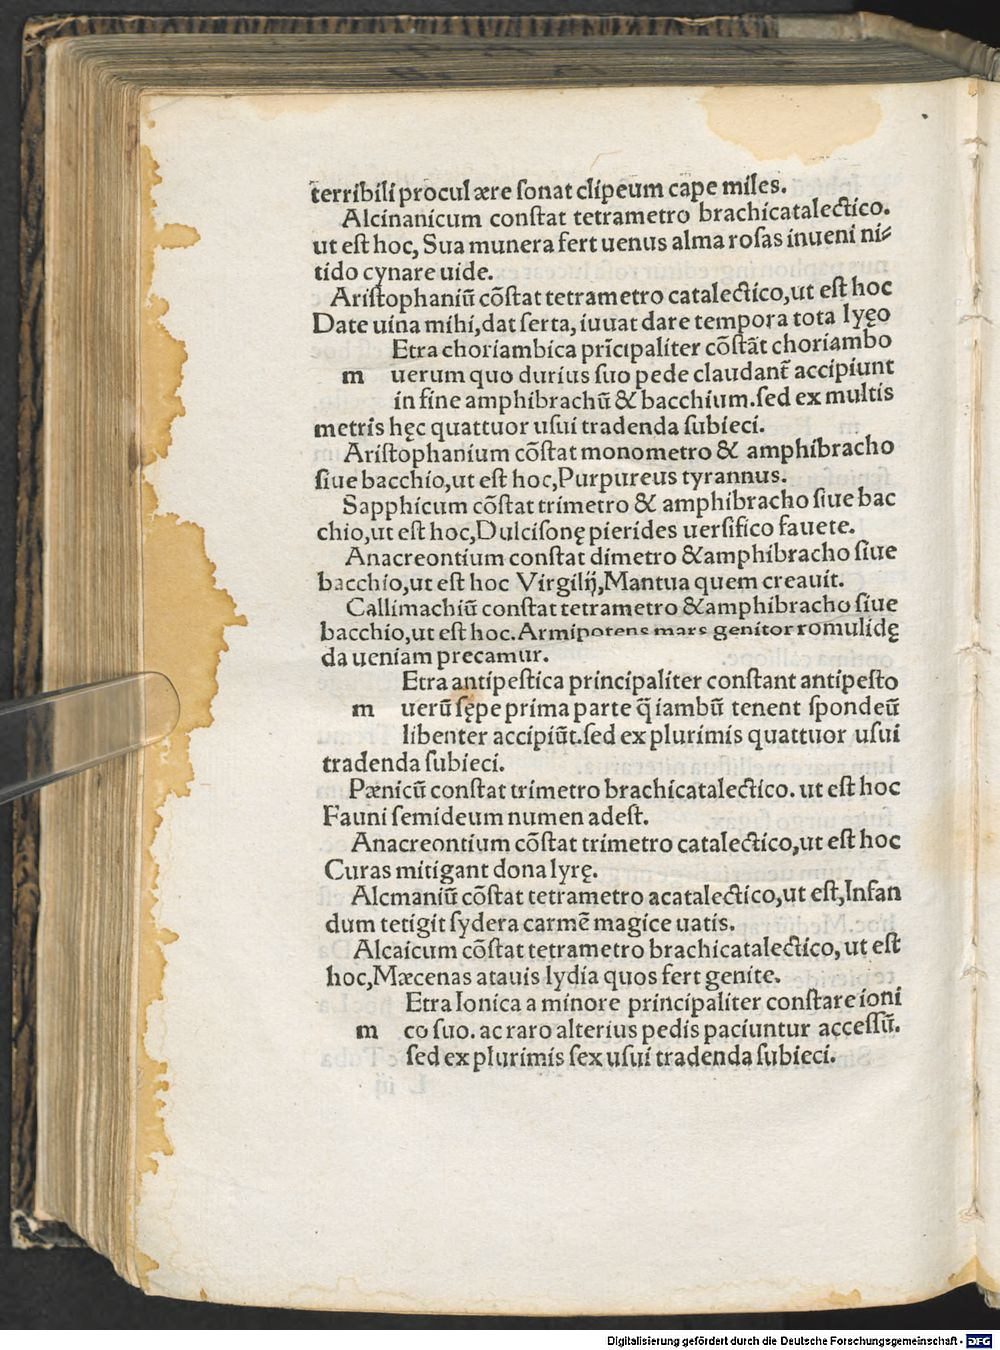 terribili procul ære ſonat clipeum cape miles.
Alcinanicum conſtat tetrametro brachicatalectico.
ut eſt hoc, Sua munera fert uenus alma roſas inueni ni⸗
tido cynare uide.
Ariſtophaniū cōſtat tetrametro catalectico,ut eſt hoc
Date uina mihi,dat ſerta, iuuat dare tempora tota lyęo
Etra choriambica prīcipaliter cōſtāt choriambo
m uerum quo durius ſuo pede claudant̄ accipiunt
in fine amphibrachū & bacchium.ſed ex multis
metris hęc quattuor uſui tradenda ſubieci.
Ariſtophanium cōſtat monometro & amphibracho
ſiue bacchio,ut eſt hoc,Purpureus tyrannus.
Sapphicum cōſtat trimetro & amphibracho ſiue bac
chio,ut eſt hoc,Dulciſonę pierides uerſifico fauete.
Anacreontium conſtat dimetro &amphibracho ſiue
bacchio,ut eſt hoc Virgilij,Mantua quem creauit.
Callimachiū conſtat tetrametro &amphibracho ſiue
bacchio,ut eſt hoc.Armipotens mars genitor romulidę
da ueniam precamur.
Etra antipeſtica principaliter conſtant antipeſto
m uerū ſępe prima parte q̄ iambū tenent ſpondeū
libenter accipiūt.ſed ex plurimis quattuor uſui
tradenda ſubieci.
Pænicū conſtat trimetro brachicatalectico. ut eſt hoc
Fauni ſemideum numen adeſt.
Anacreontium cōſtat trimetro catalectico,ut eſt hoc
Curas mitigant dona lyrę.
Alcmaniū cōſtat tetrametro acatalectico,ut eſt,Infan
dum tetigit ſydera carmē magice uatis.
Alcaicum cōſtat tetrametro brachicatalectico, ut eſt
hoc,Mæcenas atauis lydia quos fert genite.
Etra Ionica a minore principaliter conſtare ioni
m co ſuo. ac raro alterius pedis paciuntur acceſſū.
ſed ex plurimis ſex uſui tradenda ſubieci.
Digitalisierung gefördert durch die Deutsche Forschungsgemeinschaft - DFG